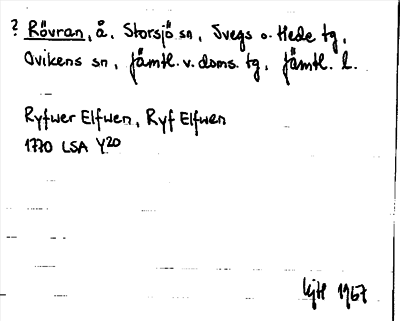 ? Rövran, å, Storsjö sn, Svegs o. Hede tg,
Ovikens sn, Jämtl. v. doms. tg, Jämtl. l.
Ryfwer Elfwen, Ryf Elfwen
1770 LSA Y20
1967